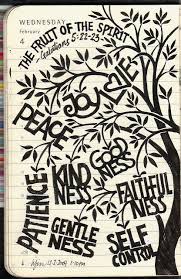 WEDNESDAY
February
4
THE FRUIT OF THE SPIRIT
Galatians 5:22-23
LOVE
JOY
PEACE
PATIENCE
KIND
NESS
GOOD
NESS
FAITHFUL
NESS
GENTLE
NESS
SELF
CONTROL